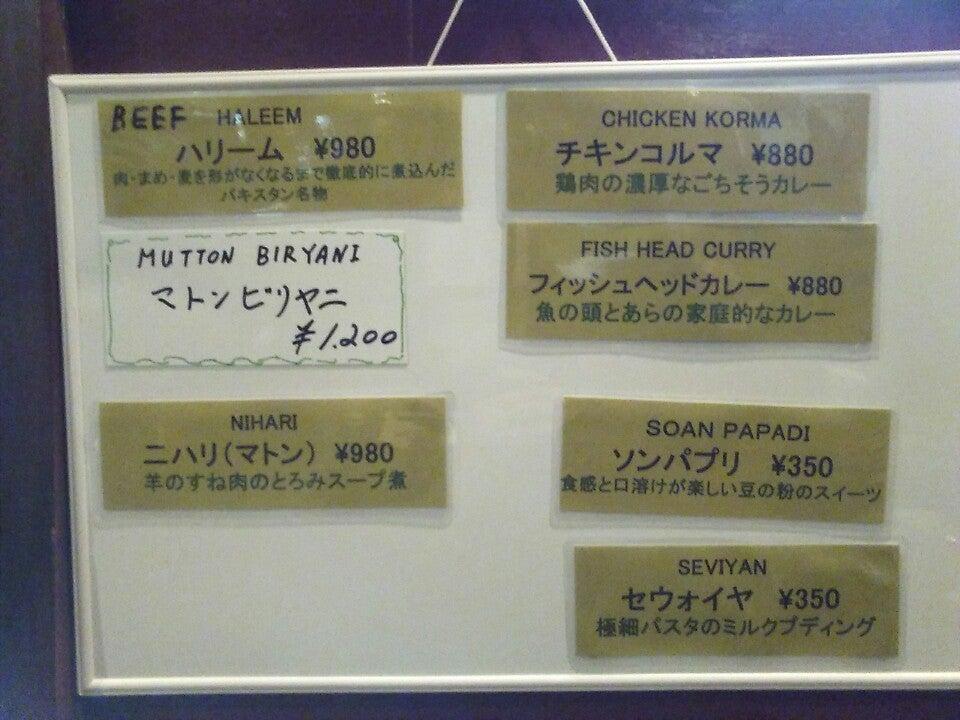 BEEF HALEEM
ハリーム ¥980
肉・まめ・麦を形がなくなるまで徹底的に煮込んだ
パキスタン名物
MUTTON BIRYANI
マトンビリヤニ
¥1.200
NIHARI
ニハリ(マトン) ¥980
羊のすね肉のとろみスープ煮
CHICKEN KORMA
チキンコルマ ¥880
鶏肉の濃厚なごちそうカレー
FISH HEAD CURRY
フィッシュヘッドカレー ¥880
魚の頭とあらの家庭的なカレー
SOAN PAPADI
ソンパプリ ¥350
食感と口溶けが楽しい豆の粉のスイーツ
SEVIYAN
セウォイヤ ¥350
極細パスタのミルクプディング